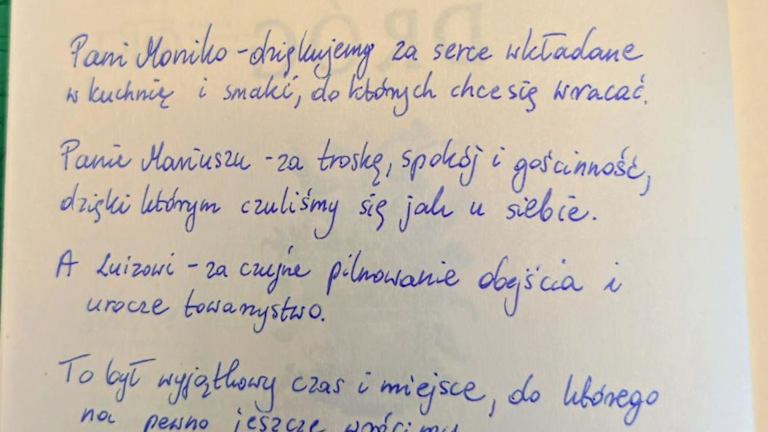 Pani Moniko - dziękujemy za serce wkładane
w kuchnię i smaki, do których chce się wracać.
Panie Mariuszu - za troskę, spokój i gościnność,
dzięki którym czuliśmy się jak u siebie.
A Luizowi - za czujne pilnowanie obejścia i
urocze towarzystwo.
To był wyjątkowy czas i miejsce, do którego
na pewno jeszcze wrócimy